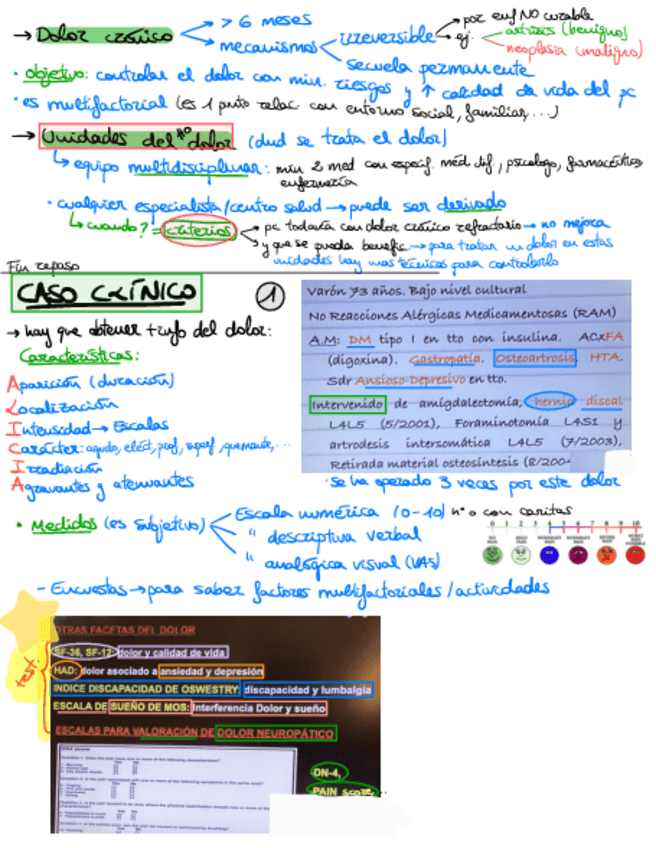 → Dolor crónico
> 6 meses
mecanismos
irreversible
→ por enf NO curable
→ ej:
artrosis (benigno)
neoplasia (maligno)
secuela permanente
• objetivo: controlar el dolor con min. riesgos y ↑ calidad de vida del pc
• es multifactorial (es 1 puto relac. con entorno social, familiar, ...)
→ Unidades del dolor (dnd se trata el dolor)
↳ equipo multidisciplinar: min 2 med con especif. méd dif, psicólogo, farmacéuticos
enfermería
• cualquier especialista/centro salud → puede ser derivado
↳ cuando? = criterios
→ pc todavía con dolor crónico refractario → no mejora
→ y que se pueda benefic. → para tratar un dolor en estas
unidades hay mas técnicas para controlarlo
Fin repaso
CASO CLÍNICO
1
→ hay que obtener + info del dolor:
Características:
Aparición (duración)
Localización
Intensidad → Escalas
Carácter: agudo, eléct, prof, superf, quemante, ...
Irradiación
Agravantes y atenuantes
Varón 73 años. Bajo nivel cultural
No Reacciones Alérgicas Medicamentosas (RAM)
A.M: DM tipo I en tto con insulina. ACxFA
(digoxina). Gastropatía. Osteoartrosis. HTA.
Sdr Ansioso-Depresivo en tto.
Intervenido de amigdalectomía, hernia discal
L4L5 (5/2001), Foraminotomía L4S1 y
artrodesis intersomática L4L5 (7/2003),
Retirada material osteosíntesis (8/200
• se ha operado 3 veces por este dolor
• Medidos (es subjetivo)
Escala numérica (0-10) nº o con caritas
" descriptiva verbal
" analógica visual (VAS)
0 1 2 3 4 5 6 7 8 9 10
- Encuestas → para saber factores multifactoriales/actividades
test.
OTRAS FACETAS DEL DOLOR
SF-36, SF-12 dolor y calidad de vida
HAD: dolor asociado a ansiedad y depresión
INDICE DISCAPACIDAD DE OSWESTRY: discapacidad y lumbalgia
ESCALA DE SUEÑO DE MOS: Interferencia Dolor y sueño
ESCALAS PARA VALORACIÓN DE DOLOR NEUROPÁTICO
DN-4,
PAIN SCORE,